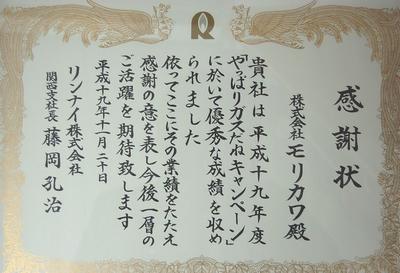 感謝状
株式会社 モリカワ殿
貴社は平成十九年度
「やっぱりガスだねキャンペーン」
に於いて優秀な成績を収め
られました
依ってここにその業績をたたえ
感謝の意を表し今後一層の
ご活躍を期待致します
平成十九年十一月二十日
リンナイ株式会社
関西支社長 藤岡孔治